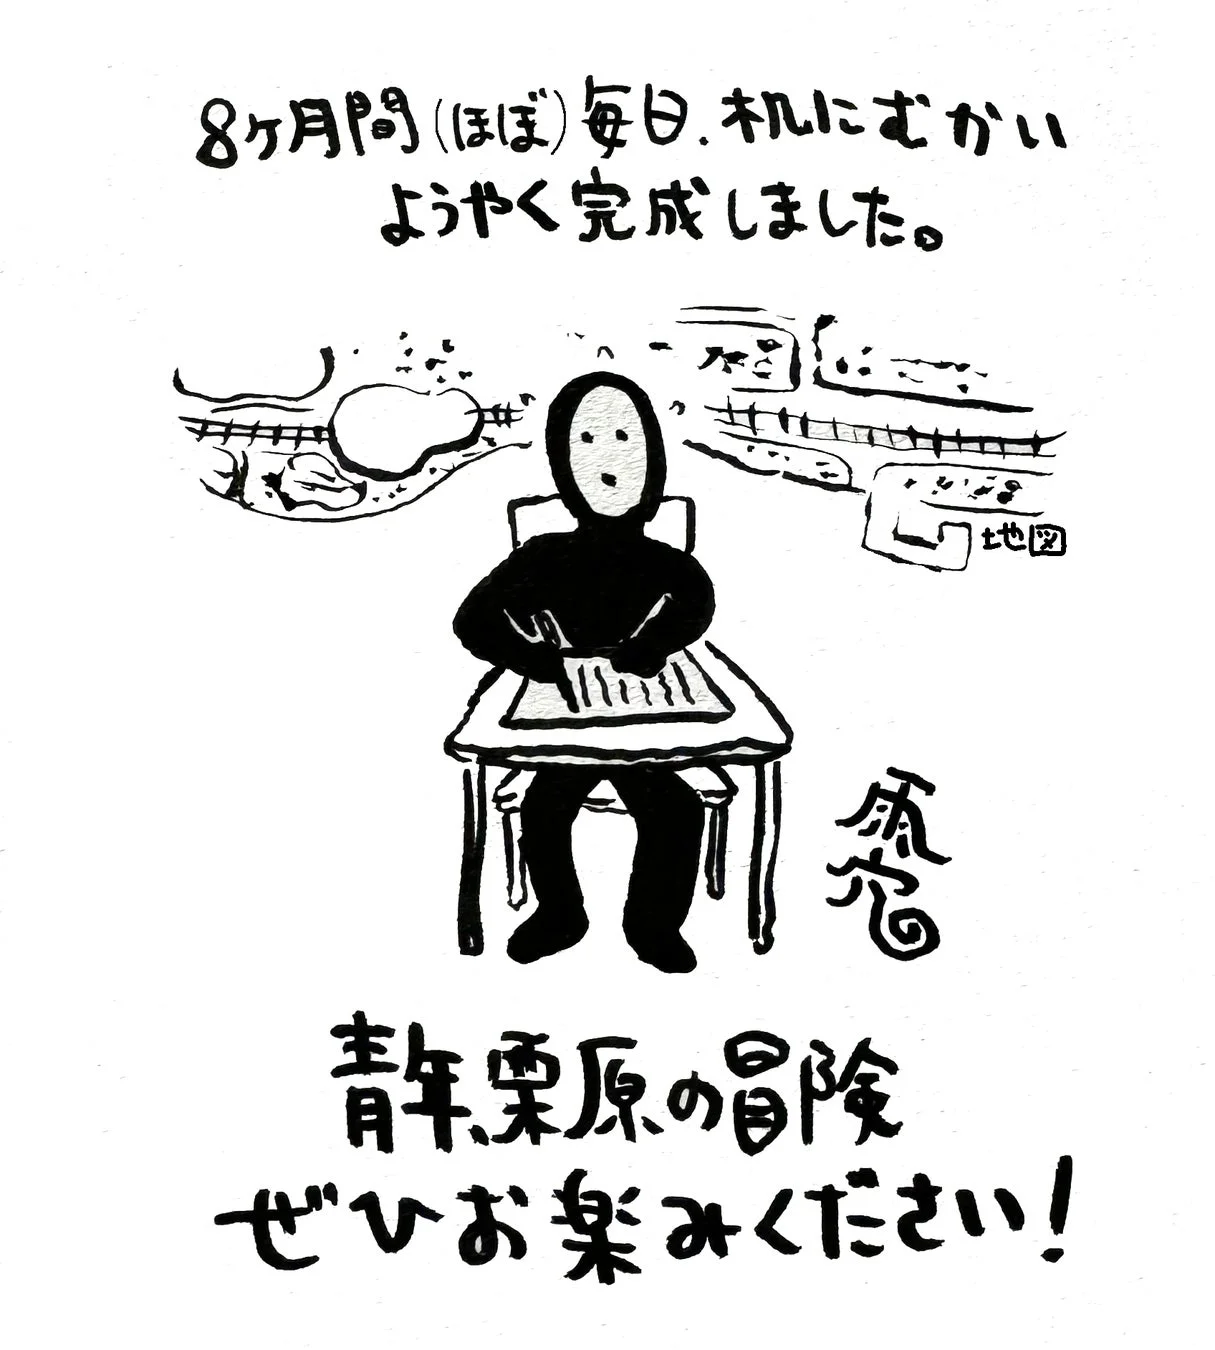 8ヶ月間(ほぼ)毎日、机にむかい
ようやく完成しました。
地図
雨穴
青年、栗原の冒険
ぜひお楽みください!